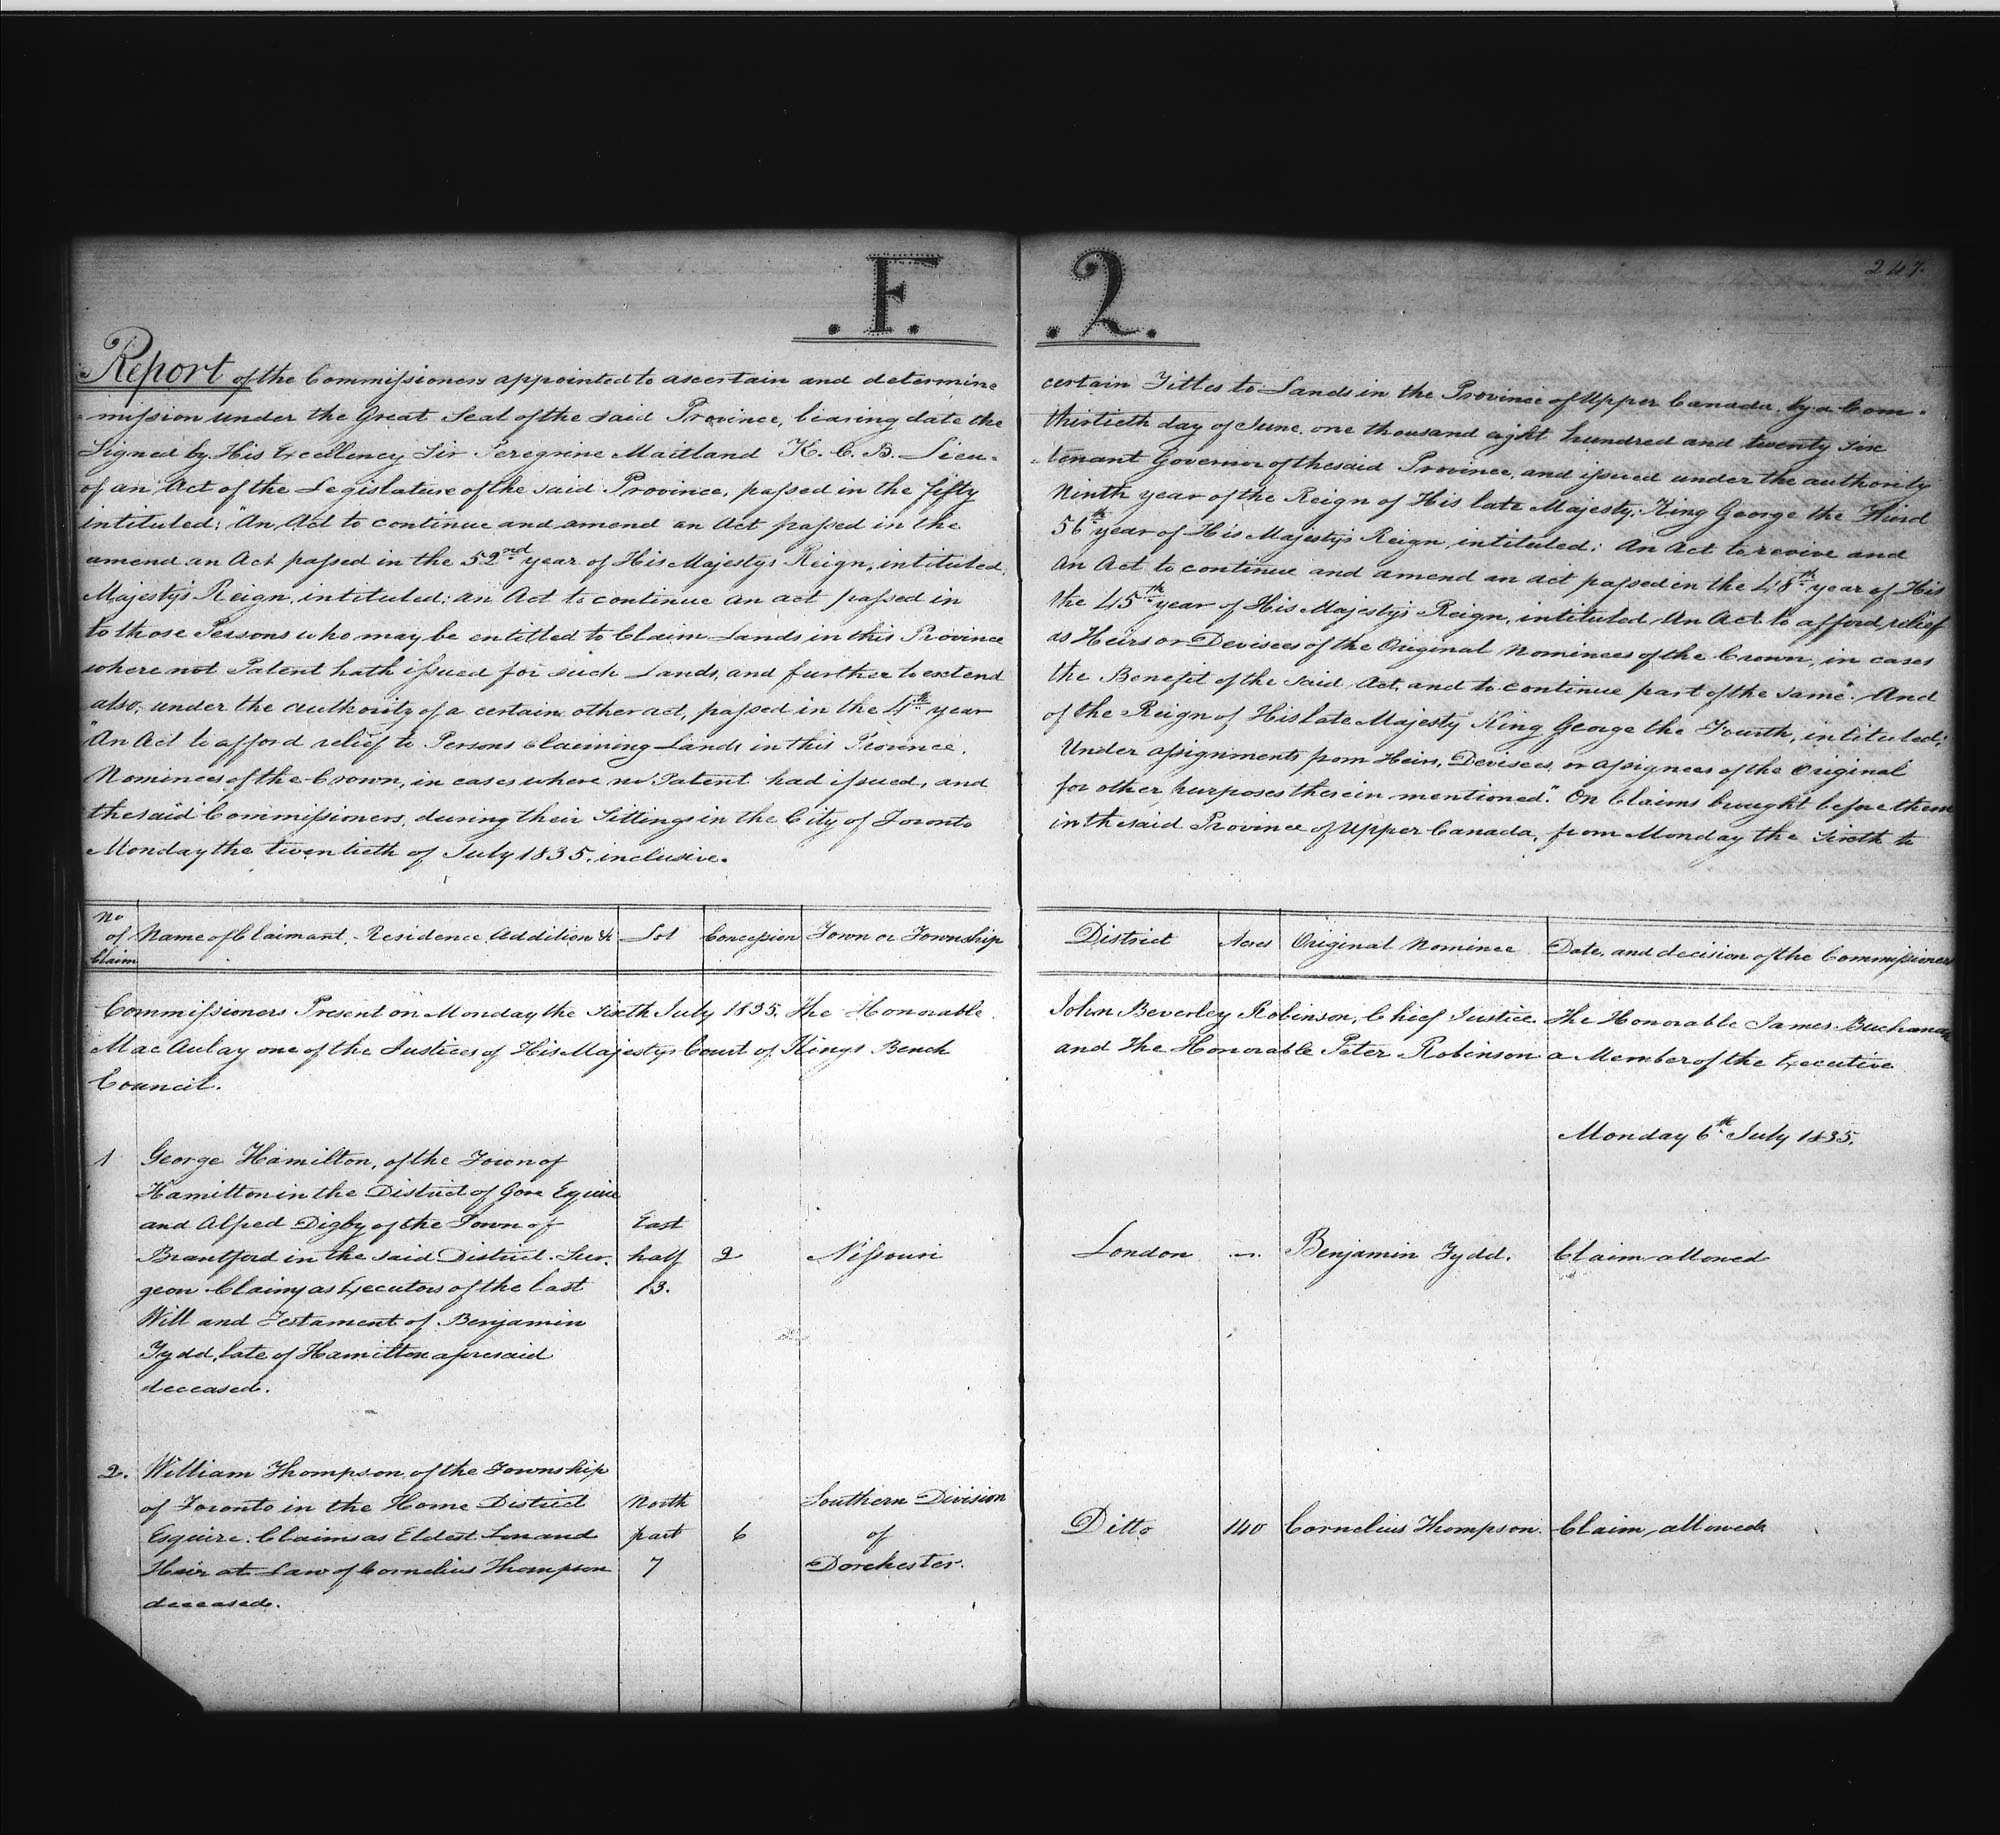 .F. .2.
247.
Report of the Commissioners appointed to ascertain and determine certain Titles to Lands in the Province of Upper Canada, by a Com-
-mission under the Great Seal of the said Province, bearing date the thirtieth day of June, one thousand eight hundred and twenty six
Signed by His Excellency Sir Peregrine Maitland K. C. B. Lieu- -tenant Governor of the said Province, and issued under the authority
of an Act of the Legislature of the said Province, passed in the fifty Ninth year of the Reign of His late Majesty, King George the Third
intituled; "An Act to continue and amend an Act passed in the 56th year of His Majesty's Reign, intituled; An Act to revive and
amend an Act passed in the 52nd year of His Majestys Reign, intituled, An Act to continue and amend an act passed in the 48th year of His
Majesty's Reign, intituled; an Act to continue an act passed in the 45th year of His Majesty's Reign, intituled, An Act to afford relief
to those Persons who may be entitled to Claim Lands in this Province as Heirs or Devisees of the Original Nominees of the Crown, in cases
where not Patent hath issued for such Lands, and further to extend the Benefit of the said Act, and to continue part of the same". And
also, under the authority of a certain other act, passed in the 4th year of the Reign of His late Majesty King George the Fourth, intituled;
"An Act to afford relief to Persons Claiming Lands in this Province, Under assignments from Heirs, Devisees, or assignees of the Original
Nominees of the Crown, in cases where no Patent had issued, and for other purposes therein mentioned." On Claims brought before them
the said Commissioners, during their Sittings in the City of Toronto in the said Province of Upper Canada, from Monday the Sixth to
Monday the twentieth of July 1835. inclusive.
No of Claim Name of Claimant, Residence, Addition &c Lot Concession Town or Township District Acres Original Nominee Date, and decision of the Commissioners
Commissioners Present on Monday the Sixth July 1835. The Honorable John Beverley Robinson, Chief Justice. The Honorable James Buchanan
Mac Aulay one of the Justices of His Majestys Court of Kings Bench and The Honorable Peter Robinson a Member of the Executive
Council.
Monday 6th July 1835.
1 George Hamilton, of the Town of
Hamilton in the District of Gore Esquire
and Alfred Digby of the Town of East
Brantford in the said District. Sur- half 2 Nissouri London -. Benjamin Tydd. Claim allowed
geon Claimy as Executors of the last 13.
Will and Testament of Benjamin
Tydd, late of Hamilton aforesaid
deceased.
2. William Thompson, of the Township
of Toronto in the Home District North Southern Division
Esquire. Claims as Eldest Son and part 6 of Ditto 140 Cornelius Thompson. Claim allowed
Heir at Law of Cornelius Thompson 7 Dorchester.
deceased.